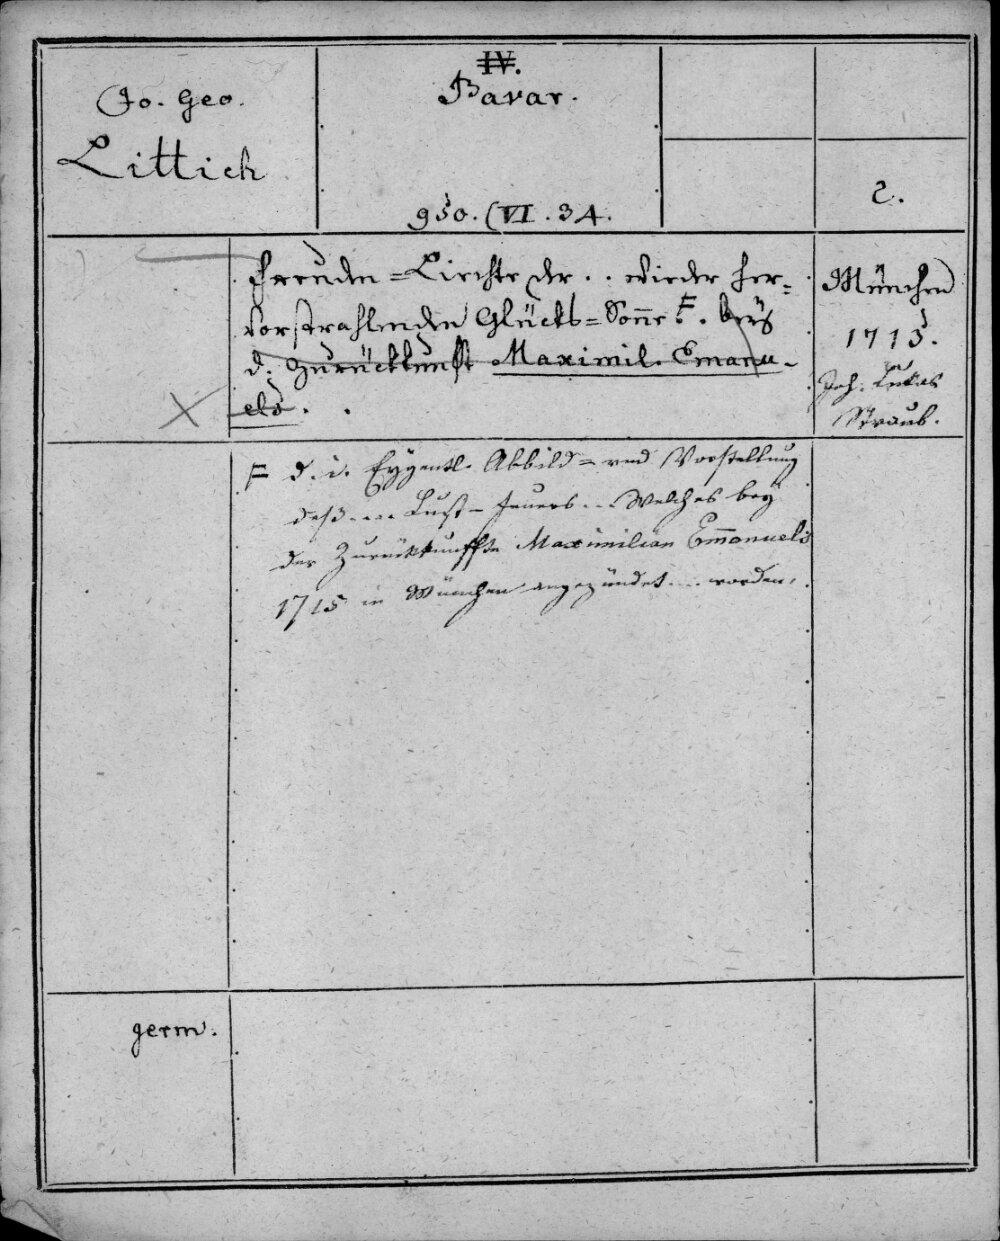 Jo. Geo.
Littich
IV.
Bavar.
950. (VI. 34.
2.
Freuden=Liechte der .. wieder her=
vorstrahlenden Glücks=Soñe F. beÿ
d. Zurückkunft Maximil. Emanu-
els. .
München
1715.
Joh. Lukas
Straub.
F d. i. Eygentl. Abbild= und Vorstellung
deß .... Lust-Feuers ... Welches bey
der Zurückkunffte Maximilian Em̄anuels
1715 in München angezündet .... worden.
germ.